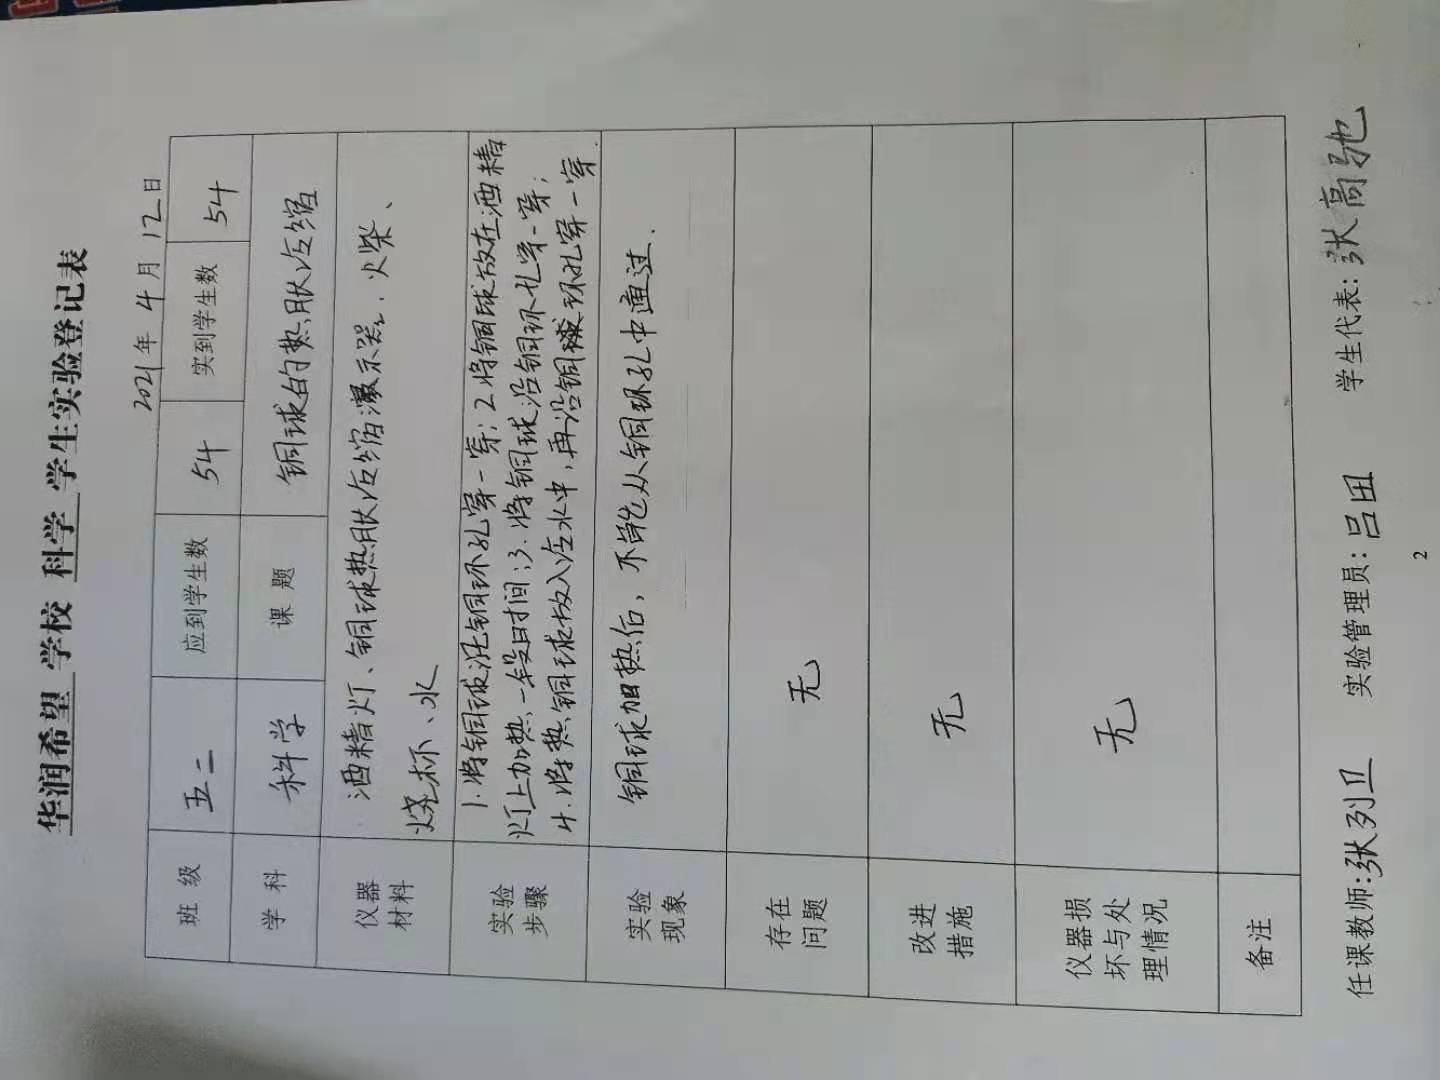 华润希望 学校 科学 学生实验登记表
2021年 4月 12日
班 级 五二 应到学生数 54 实到学生数 54
学 科 科学 课 题 铜球的热胀冷缩
仪器材料 酒精灯、铜球热胀冷缩演示器、火柴、
烧杯、水
实验步骤 1.将铜球沿铜环孔穿一穿;2将铜球放在酒精
灯上加热一段时间;3.将铜球沿铜环孔穿一穿;
4.将热铜球放入冷水中,再沿铜环孔穿一穿
实验现象 铜球加热后,不能从铜环孔中通过.
存在问题 无
改进措施 无
仪器损坏与处理情况 无
备注
任课教师:张列卫 实验管理员:吕田 学生代表:张高驰
2